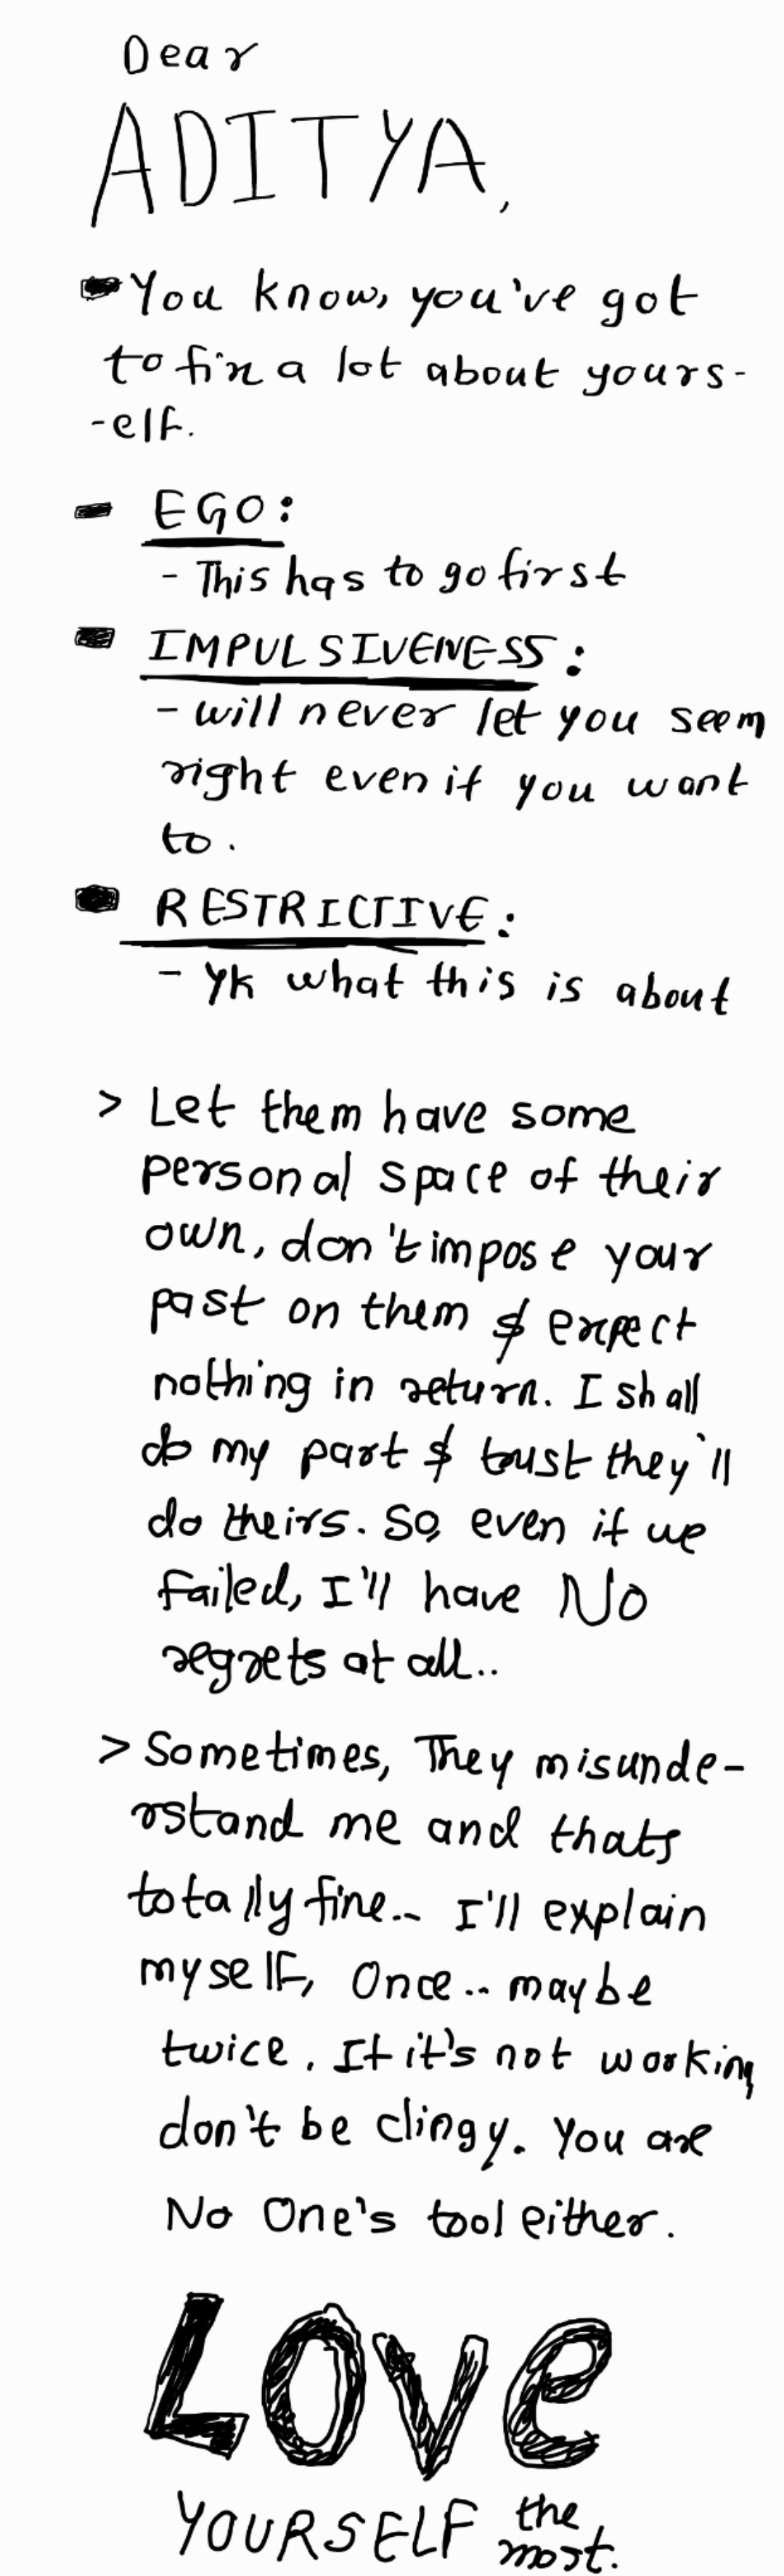 Dear
ADITYA,
You know, you've got
to fix a lot about yours-
-elf.
- EGO:
- This has to go first
IMPULSIVENESS:
- will never let you seem
right even if you want
to.
RESTRICTIVE:
- yk what this is about
> Let them have some
personal space of their
own, don't impose your
past on them & expect
nothing in return. I shall
do my part & trust they'll
do theirs. So, even if we
failed, I'll have No
regrets at all..
> Sometimes, They misunde-
rstand me and thats
totally fine.. I'll explain
myself, Once.. maybe
twice. If it's not working
don't be clingy. You are
No One's tool either.
LOVe
YOURSELF the
most.